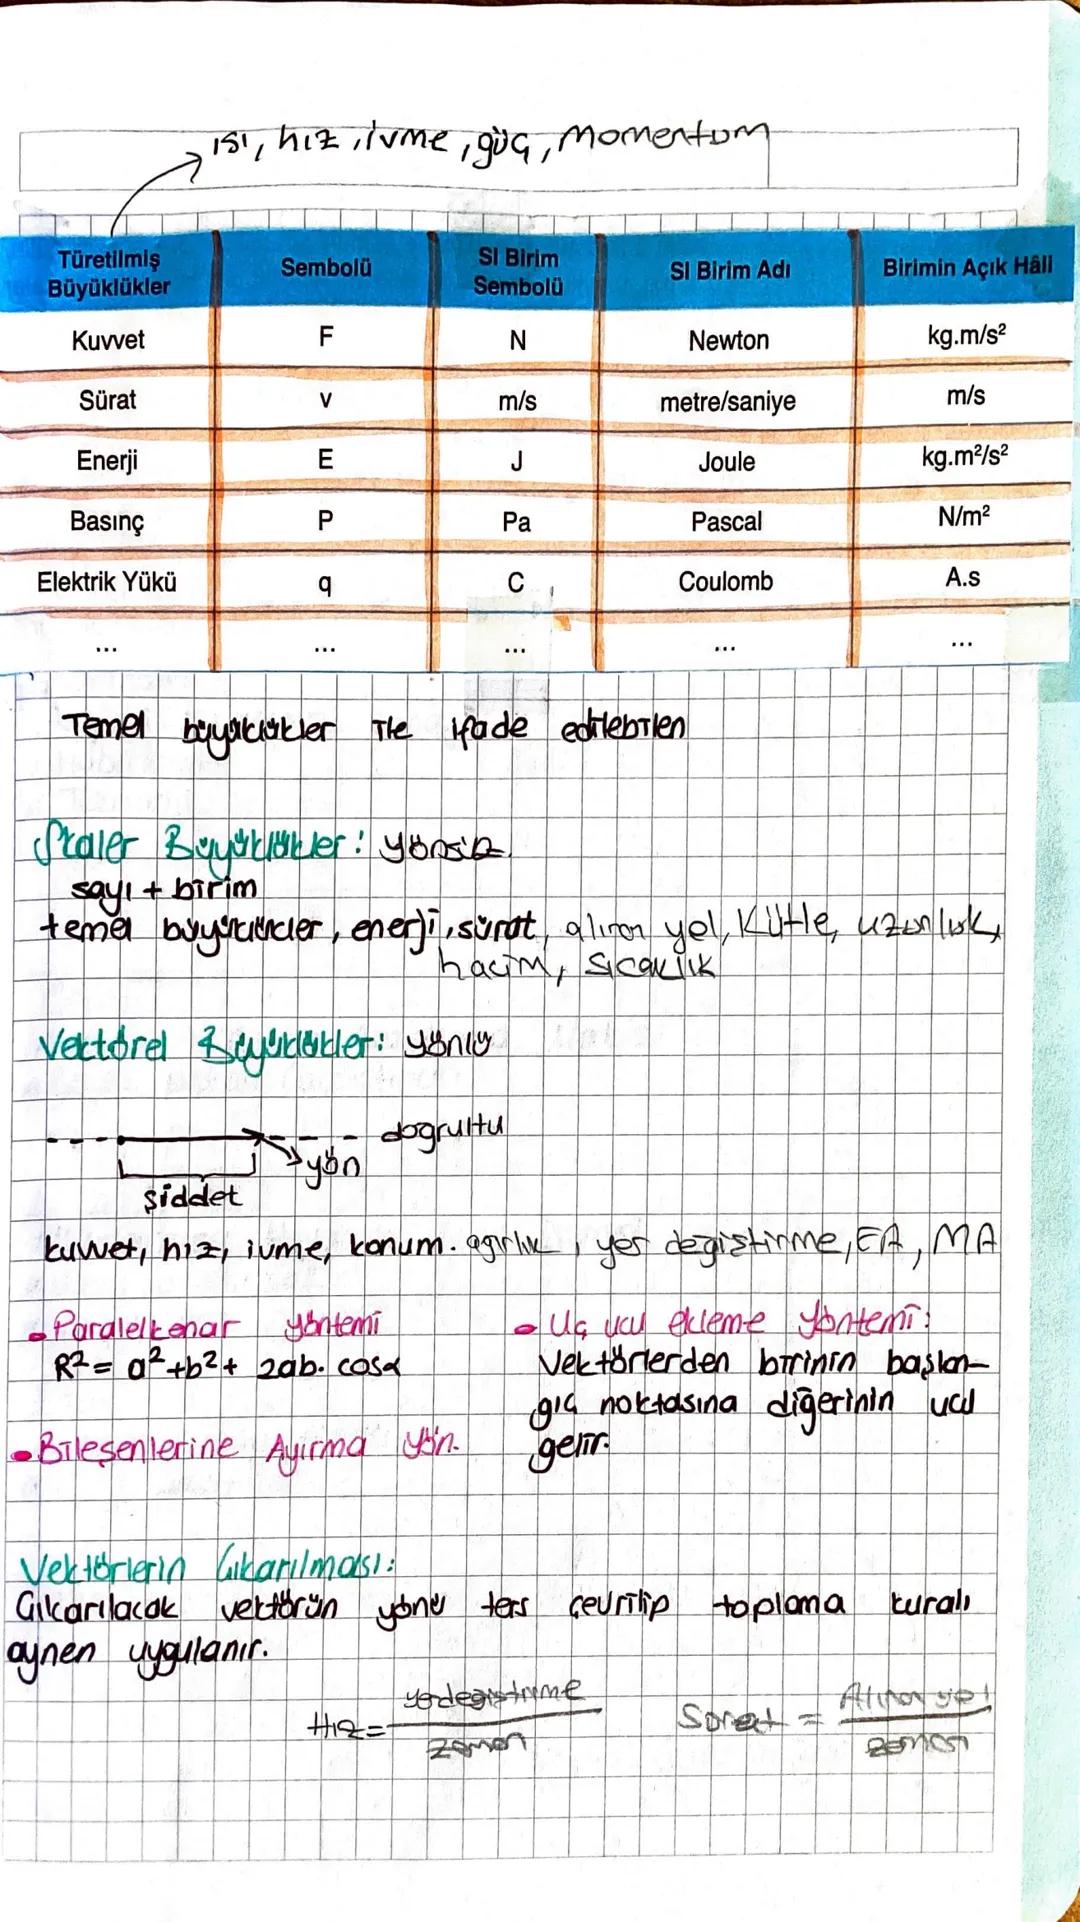 ısı, hız, ivme, güç, Momentum
Türetilmiş Büyüklükler | Sembolü | SI Birim Sembolü | SI Birim Adı | Birimin Açık Hâli
Kuvvet | F | N | Newton | kg.m/s²
Sürat | v | m/s | metre/saniye | m/s
Enerji | E | J | Joule | kg.m²/s²
Basınç | P | Pa | Pascal | N/m²
Elektrik Yükü | q | C | Coulomb | A.s
... | ... | ... | ... | ...
Temel büyüklükler ile ifade edilebilen
Skaler Büyüklükler: yönsüz.
sayı + birim
temel büyüklükler, enerji, sürat, alınan yol, Kütle, uzunluk,
hacim, sıcaklık
Vektörel Büyüklükler: yönlü
doğrultu
yön
şiddet
kuvvet, hız, ivme, konum. ağırlık, yer değiştirme, EA, MA
• Paralelkenar yöntemi
R² = a² + b² + 2ab. cosα
• Bileşenlerine Ayırma yön.
• Uç uca ekleme yöntemi:
Vektörlerden birinin başlan-
gıç noktasına diğerinin ucu
gelir.
Vektörlerin Çıkarılması:
Çıkarılacak vektörün yönü ters çevrilip toplama kuralı
aynen uygulanır.
Hız = yerdeğiştirme / zaman
Sürat = Alınan yol / zaman